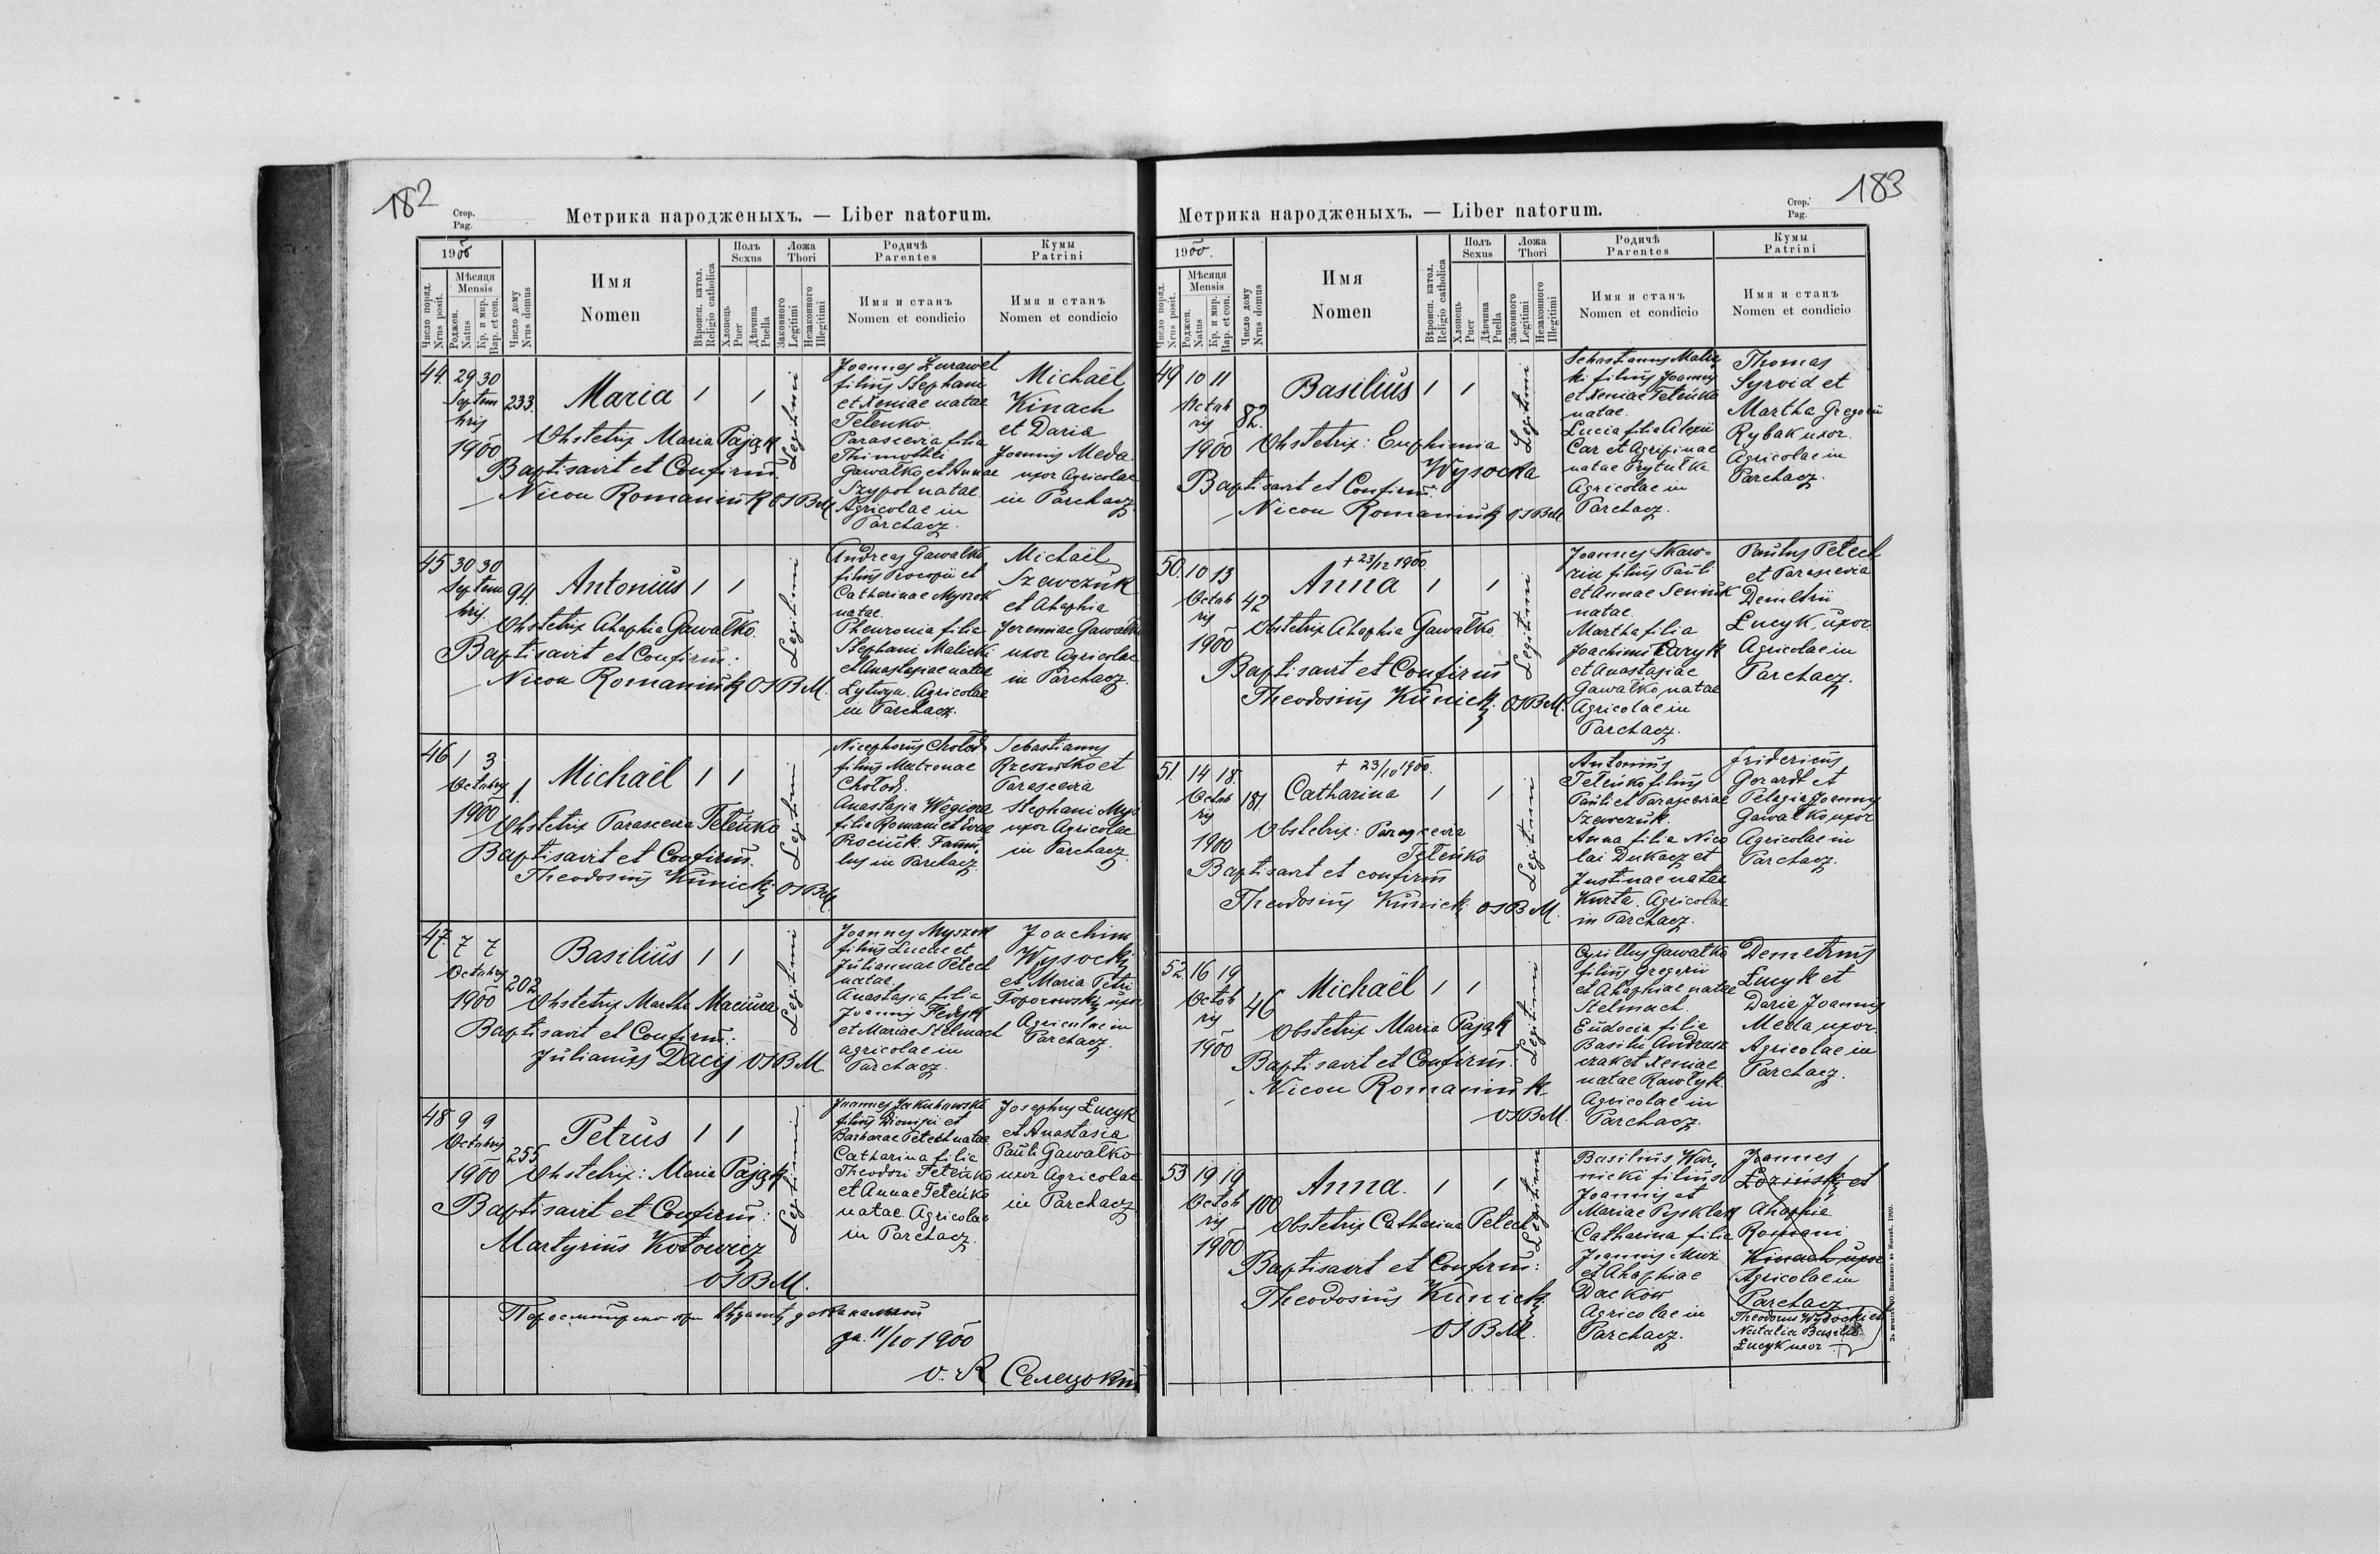 182
Стор.
Pag.
Метрика народженыхъ. — Liber natorum.
1900
Мѣсяця
Mensis
Число поряд.
Nrus posit.
Роджен.
Natus
Кр. и мир.
Bap. et con.
Число дому
Nrus domus
Имя
Nomen
Вѣроисп. катол.
Religio catholica
Полъ
Sexus
Хлопець
Puer
Дѣвчина
Puella
Ложа
Thori
Законного
Legitimi
Незаконного
Illegitimi
Родичѣ
Parentes
Имя и станъ
Nomen et condicio
Кумы
Patrini
Имя и станъ
Nomen et condicio
44. 29 30
Septem
bris
1900
233.
Maria 1 1
Legitimi
Obstetrix Maria Pająk
Baptisavit et Confirm.
Nicon Romaniuk OSBM
Joannes Żurawel
filius Stephani
et Xeniae natae
Teteńko.
Parascevia filia
Thimothei
Gawałko et Annae
Szypot natae.
Agricolae in
Parchacz.
Michaël
Kinach
et Daria
Joannis Meda
uxor Agricolae
in Parchacz
45 30 30
Septem
bris
94.
Antonius 1 1
Legitimi
Obstetrix Ahaphia Gawałko.
Baptisavit et Confirm:
Nicon Romaniuk OSBM.
Andreas Gawałko
filius Procopii et
Catharinae Myszok
natae.
Pheuronia filia
Stephani Malicki
et Anastasiae natae
Łytwyn. Agricolae
in Parchacz.
Michaël
Szewczuk
et Ahaphia
Jeremiae Gawałko
uxor Agricolae
in Parchacz.
46 1 3
Octobris
1900
1.
Michaël 1 1
Legitimi
Obstetrix Parascevia Teteńko
Baptisavit et Confirm.
Theodosius Kunicki OSBM
Nicephorus Chołod
filius Matronae
Chołod.
Anastasia
filia Romani et Evae
Prociuk. Famu-
lus in Parchacz
Sebastianus
Rzeszutko et
Parascevia
Stephani Mys
uxor Agricolae
in Parchacz.
47. 7 7
Octobris
1900
202
Basilius 1 1
Legitimi
Obstetrix Martha Maciura
Baptisavit et Confirm.:
Julianus Dacij OSBM.
Joannes Myszok
filius Lucae et
Juliannae Petech
natae.
Anastasia filia
Joannis Fedyk
et Mariae Stelmach
agricolae in
Parchacz.
Joachim
Wysocki
et Maria Petri
Toporowski uxor
Agricolae in
Parchacz.
48 9 9
Octobris
1900
255
Petrus 1 1
Legitimi
Obstetrix: Maria Pająk
Baptisavit et Confirm:
Martyrius Kotowicz
OSBM.
Joannes Jakubowski
filius Dionisii et
Barbarae Petech natae
Catharina filia
Theodori Teteńko
et Annae Teteńko
natae Agricolae
in Parchacz.
Josephus Łucyk
et Anastasia
Pauli Gawałko
uxor Agricolae
in Parchacz
11/10 1900
Селецокій
183
Стор.
Pag.
Метрика народженыхъ. — Liber natorum.
1900.
Мѣсяця
Mensis
Число поряд.
Nrus posit.
Роджен.
Natus
Кр. и мир.
Bap. et con.
Число дому
Nrus domus
Имя
Nomen
Вѣроисп. катол.
Religio catholica
Полъ
Sexus
Хлопець
Puer
Дѣвчина
Puella
Ложа
Thori
Законного
Legitimi
Незаконного
Illegitimi
Родичѣ
Parentes
Имя и станъ
Nomen et condicio
Кумы
Patrini
Имя и станъ
Nomen et condicio
49 10 11
Octob
ris
1900
82.
Basilius 1 1
Legitimi
Obstetrix: Euphimia
Wysocka
Baptisavit et Confirm:
Nicon Romaniuk OSBM
Sebastianus Malic
ki filius Joannis
et Xeniae Teteńko
natae.
Lucia filia Alexii
Car et Agripinae
natae Prytułka
Agricolae in
Parchacz.
Thomas
Syroid et
Martha Gregorii
Rybak uxor.
Agricolae in
Parchacz.
50. 10 13
Octob
ris
1900
42
+ 23/12 1900.
Anna 1 1
Legitimi
Obstetrix Ahaphia Gawałko
Baptisavit et Confirm
Theodosius Kunicki. OSBM.
Joannes Skaw-
ron filius Pauli
et Annae Seniuk
natae.
Martha filia
Joachimi Caryk
et Anastasiae
Gawałko natae
Agricolae in
Parchacz.
Paulus Petech
et Parascevia
Demetrii
Łucyk, uxor.
Agricolae in
Parchacz.
51. 14 18.
Octob
ris
1900
181
+ 23/10 1900.
Catharina 1 1
Legitimi
Obstetrix: Parascevia
Teteńko
Baptisavit et confirm
Theodosius Kunicki OSBM.
Antonius
Teteńko filius
Pauli et Parasceviae
Szewczuk.
Anna filia Nico
lai Dukacz et
Justinae natae
Kurta. Agricolae
in Parchacz.
Fridericus
Gerardt et
Pelagia Joannis
Gawałko uxor
Agricolae in
Parchacz.
52. 16 19
Octob
ris
1900
46
Michaël 1 1
Legitimi
Obstetrix Maria Pająk
Baptisavit et Confirm:
Nicon Romaniuk
OSBM.
Cyrillus Gawałko
filius Gregorii
et Ahaphiae natae
Stelmach.
Eudocia filia
Basilii Andrusz
czak et Xeniae
natae Rawłyk.
Agricolae in
Parchacz.
Demetrius
Łucyk et
Daria Joannis
Meda uxor.
Agricolae in
Parchacz.
53 19 19
Octob
ris
1900
100
Anna. 1 1
Legitimi
Obstetrix Catharina Petech
Baptisavit et Confirm:
Theodosius Kunicki
OSBM.
Basilius War-
nicki filius
Joannis et
Mariae Pysklak
Catharina filia
Joannis Muz
et Ahaphiae
Dackow
Agricolae in
Parchacz.
Joannes
Łoziński et
Ahaphia
Romani
Kinach uxor
Agricolae in
Parchacz
Theodorus Wysocki et
Natalia Basilii
Łucyk uxor